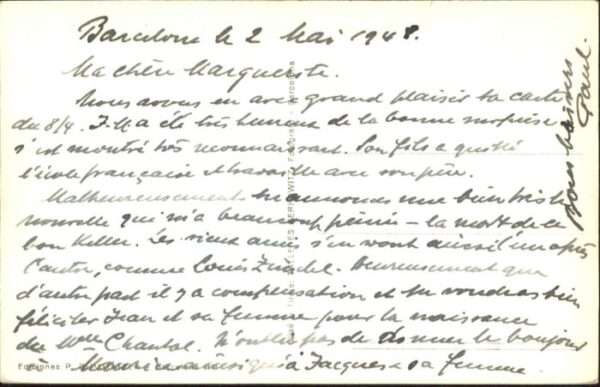 Barcelone le 2 Mai 1948.
Ma chère Marguerite.
Nous avons eu avec grand plaisir ta carte
du 8/4. a été très heureux de la bonne surprise
s'est montré très reconnaissant. Son fils a quitté
l'école française et travaille avec son père.
Malheureusement tu annonces une bien triste
nouvelle qui m'a beaucoup peiné – la mort de ce
bon Keller. Les vieux amis s'en vont ainsi l'un après
l'autre, comme Louis Heureusement que
d'autre part il y a compensation et tu voudras bien
féliciter Jean et sa femme pour la naissance
de Melle Chantal. N'oublie pas de donner le bonjour
à Maurice ainsi qu'à Jacques & sa femme.
Bons baisers
Paul.
Ediciones P